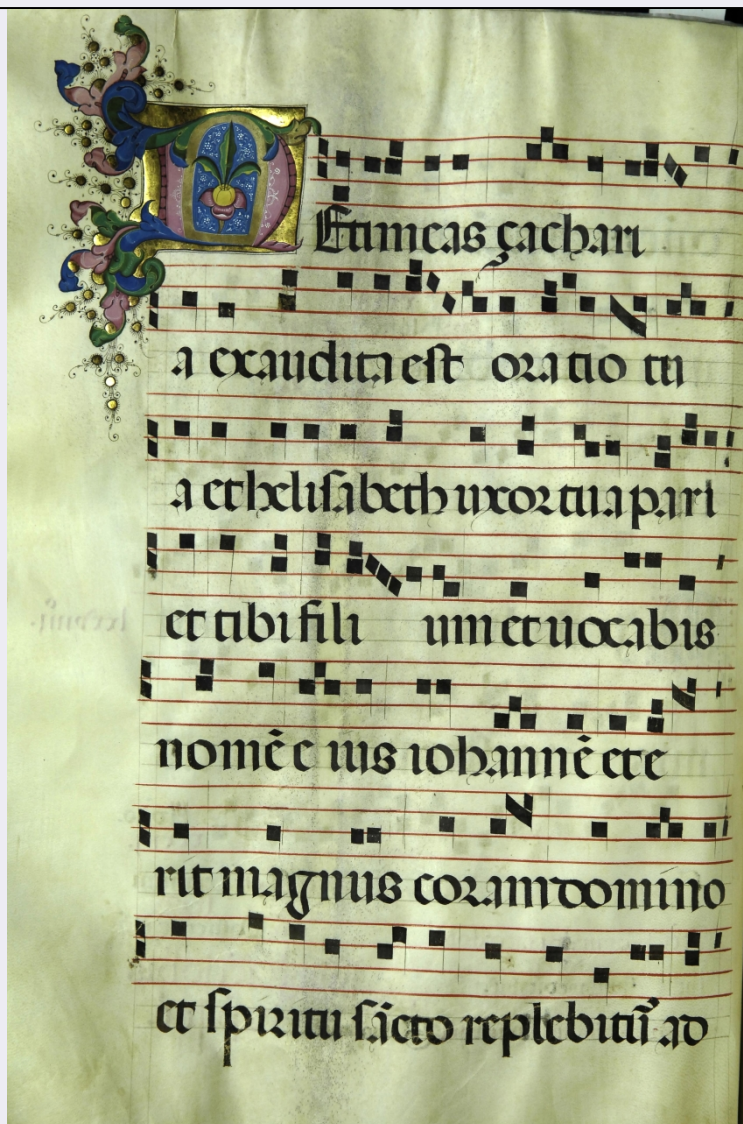 NE timeas çachari
a exaudita est oratio tu
a et helisabeth uxor tua pari
et tibi fili um et uocabis
nomē e ius iohannē et e
rit magnus coram domino
et spiritu sācto replebitur ad